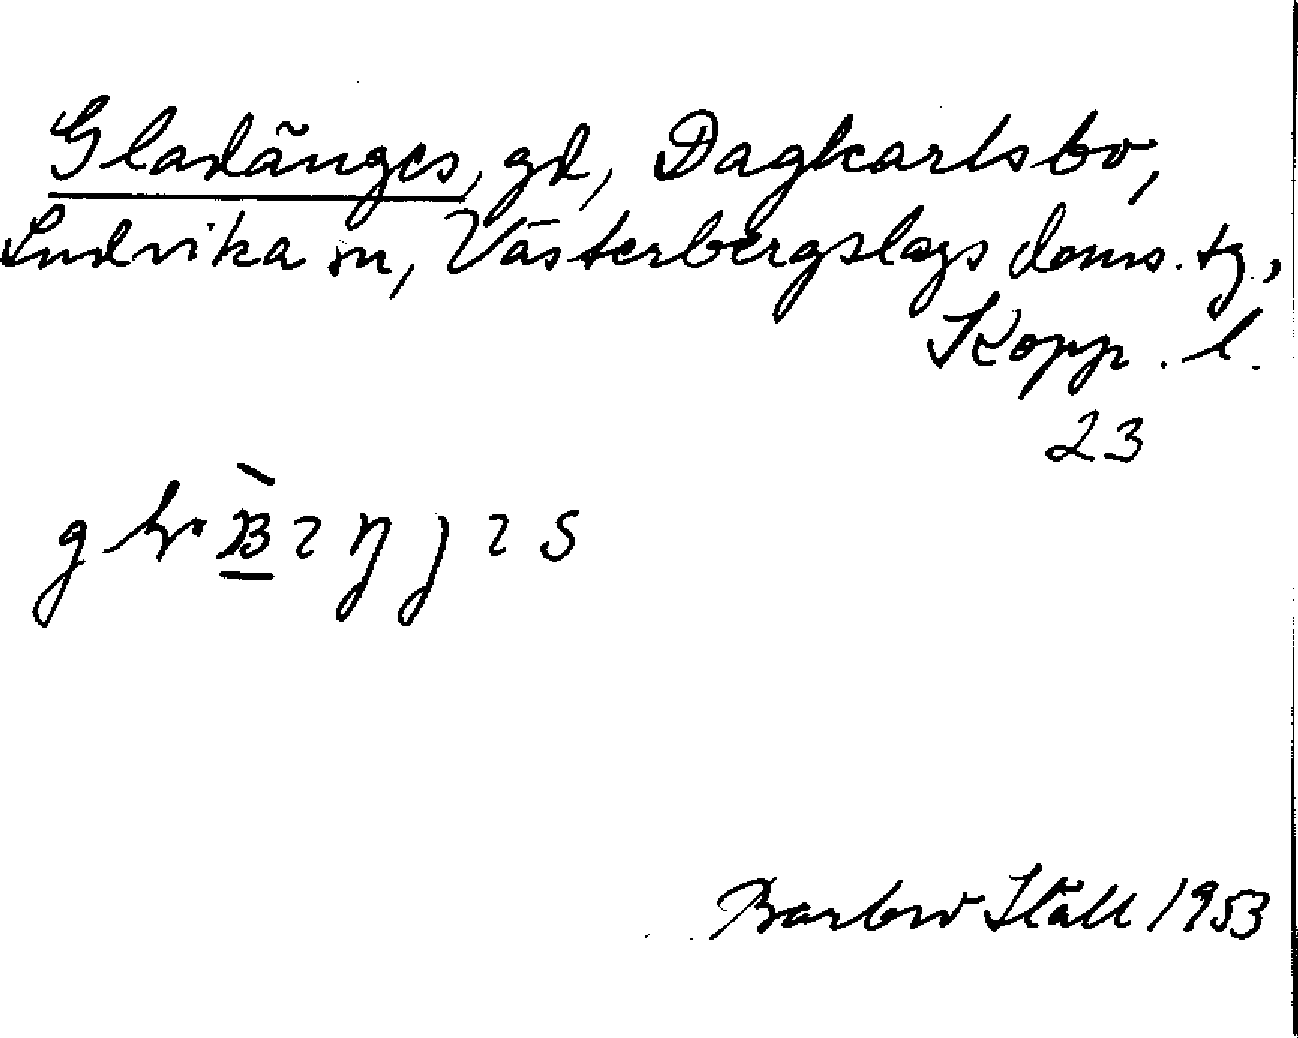 Gladänges, gd, Dagkarlsbo,
Ludvika sn, Västerbergslags doms. tg.,
Kopp. l.
23
Barbro Ställ 1953